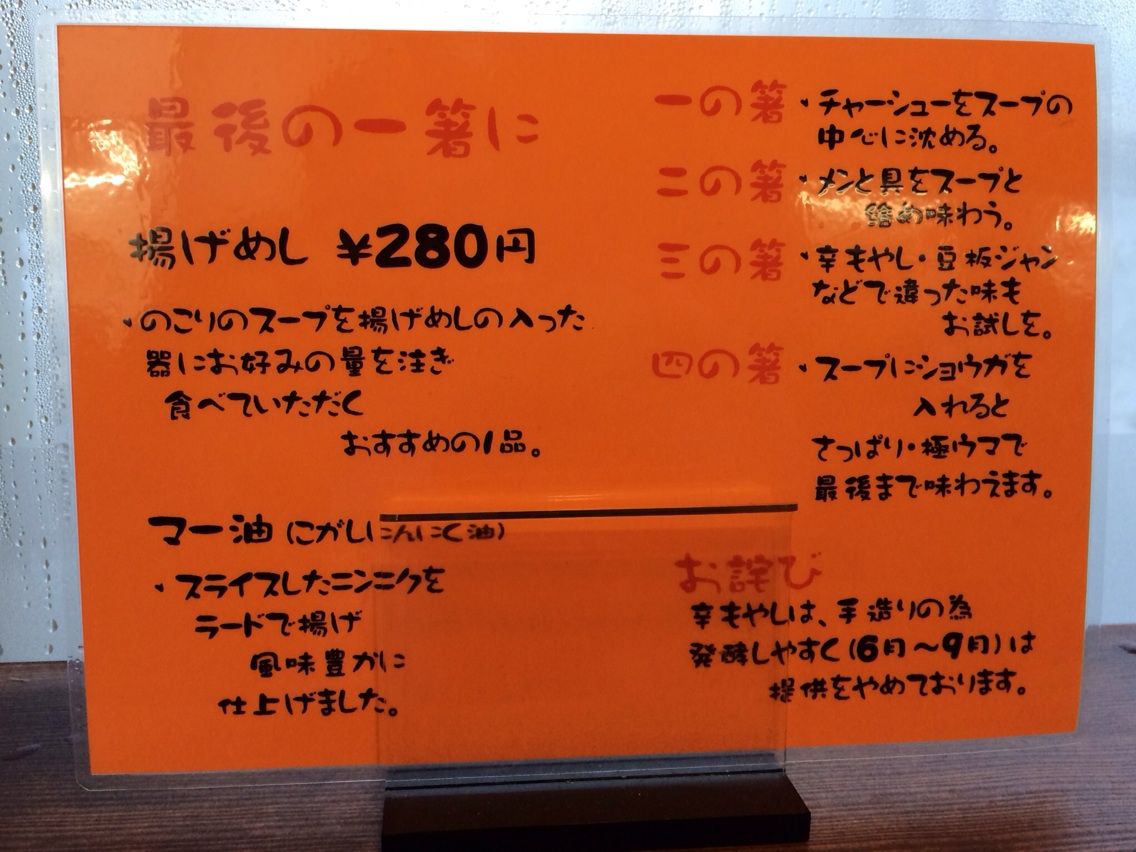 最後の一箸に
揚げめし ¥280円
・のこりのスープを揚げめしの入った
器にお好みの量を注ぎ
食べていただく
おすすめの1品。
マー油(にがしにんにく油)
・スライスしたニンニクを
ラードで揚げ
風味豊かに
仕上げました。
一の箸・チャーシューをスープの
中心に沈める。
二の箸・メンと具をスープと
絡め味わう。
三の箸・辛もやし・豆板ジャン
などで違った味も
お試しを。
四の箸・スープにショウガを
入れると
さっぱり・極ウマで
最後まで味わえます。
お詫び
辛もやしは、手造りの為
発酵しやすく(6月〜9月)は
提供をやめております。